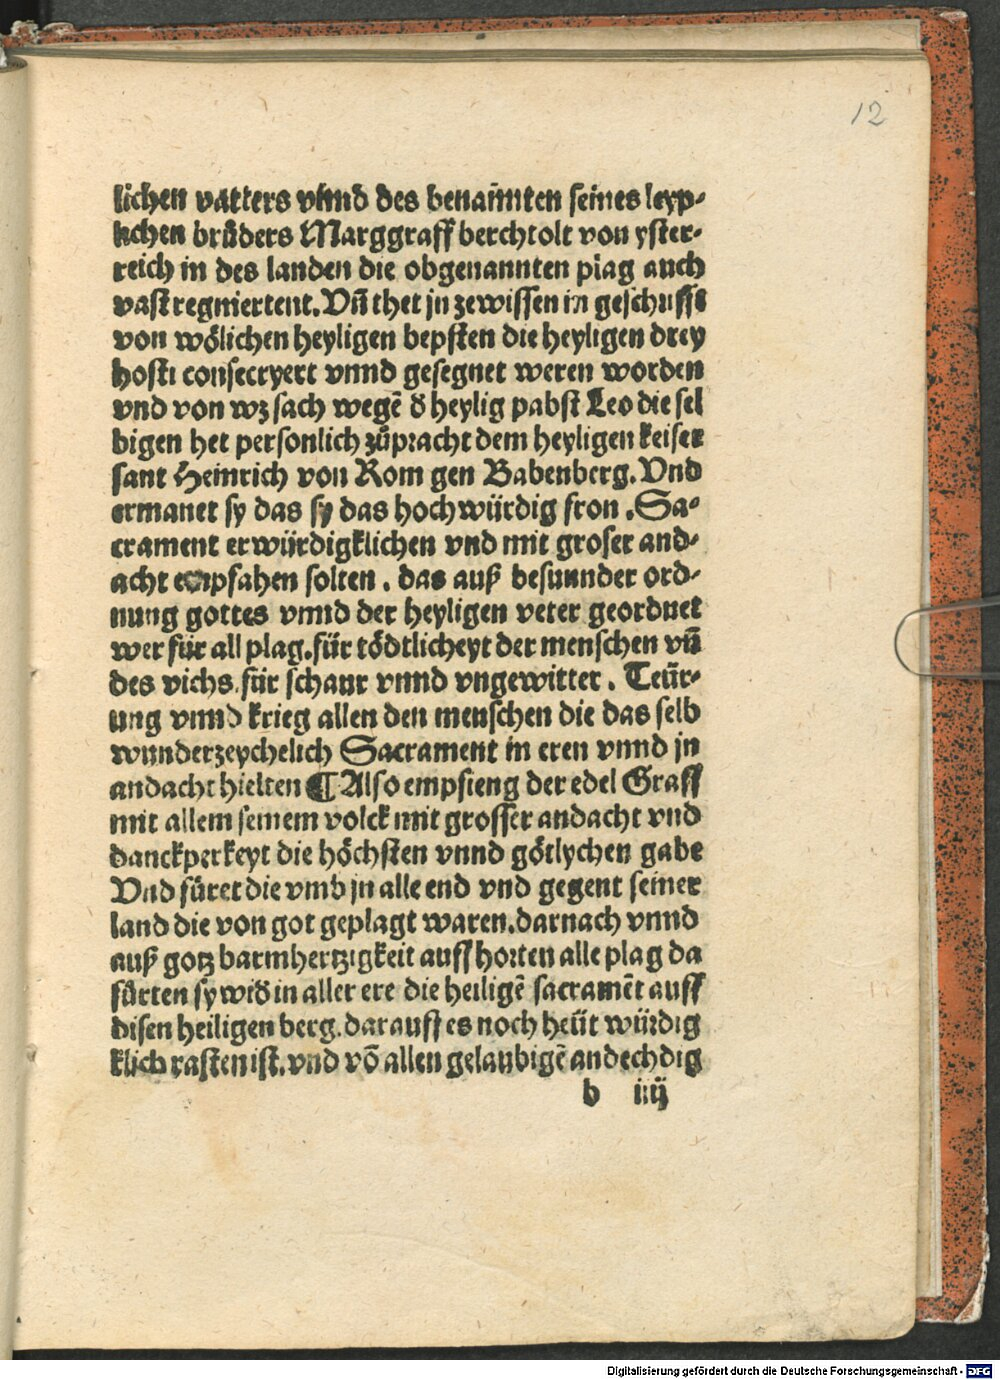 12
lichen vatters vnnd des benañnten seines leyp-
lichen brůders Marggraff berchtolt von yster-
reich in des landen die obgenannten plag auch
vast regniertent. Vñ thet jn zewissen in geschrifft
von wölichen heyligen bepsten die heyligen drey
hosti consecryert vnnd gesegnet weren worden
vnd von wz sach wegē d heylig pabst Leo die sel
bigen het personlich zůpracht dem heyligen keiser
sant Heinrich von Rom gen Babenberg. Vnd
ermanet sy das sy das hochwürdig fron . Sa-
crament erwürdigklichen vnd mit groser and-
acht empfahen solten . das auß besunnder ord-
nung gottes vnnd der heyligen veter geordnet
wer für all plag. für tödtlicheyt der menschen vñ
des vichs. für schaur vnnd vngewitter . Teür-
ung vnnd krieg allen den menschen die das selb
wunderzeychelich Sacrament in eren vnnd jn
andacht hielten ¶ Also empfieng der edel Graff
mit allem seinem volck mit grosser andacht vnd
danckperkeyt die höchsten vnnd götlychen gabe
Vnd fůret die vmb jn alle end vnd gegent seiner
land die von got geplagt waren. darnach vnnd
auß gotz barmhertzigkeit auffhorten alle plag da
fůrten sy wid in aller ere die heiligē sacramēt auff
disen heiligen berg. darauff es noch heüt würdig
klich rasten ist. vnd vō allen gelaubigē andechdig
b iiij
Digitalisierung gefördert durch die Deutsche Forschungsgemeinschaft - DFG